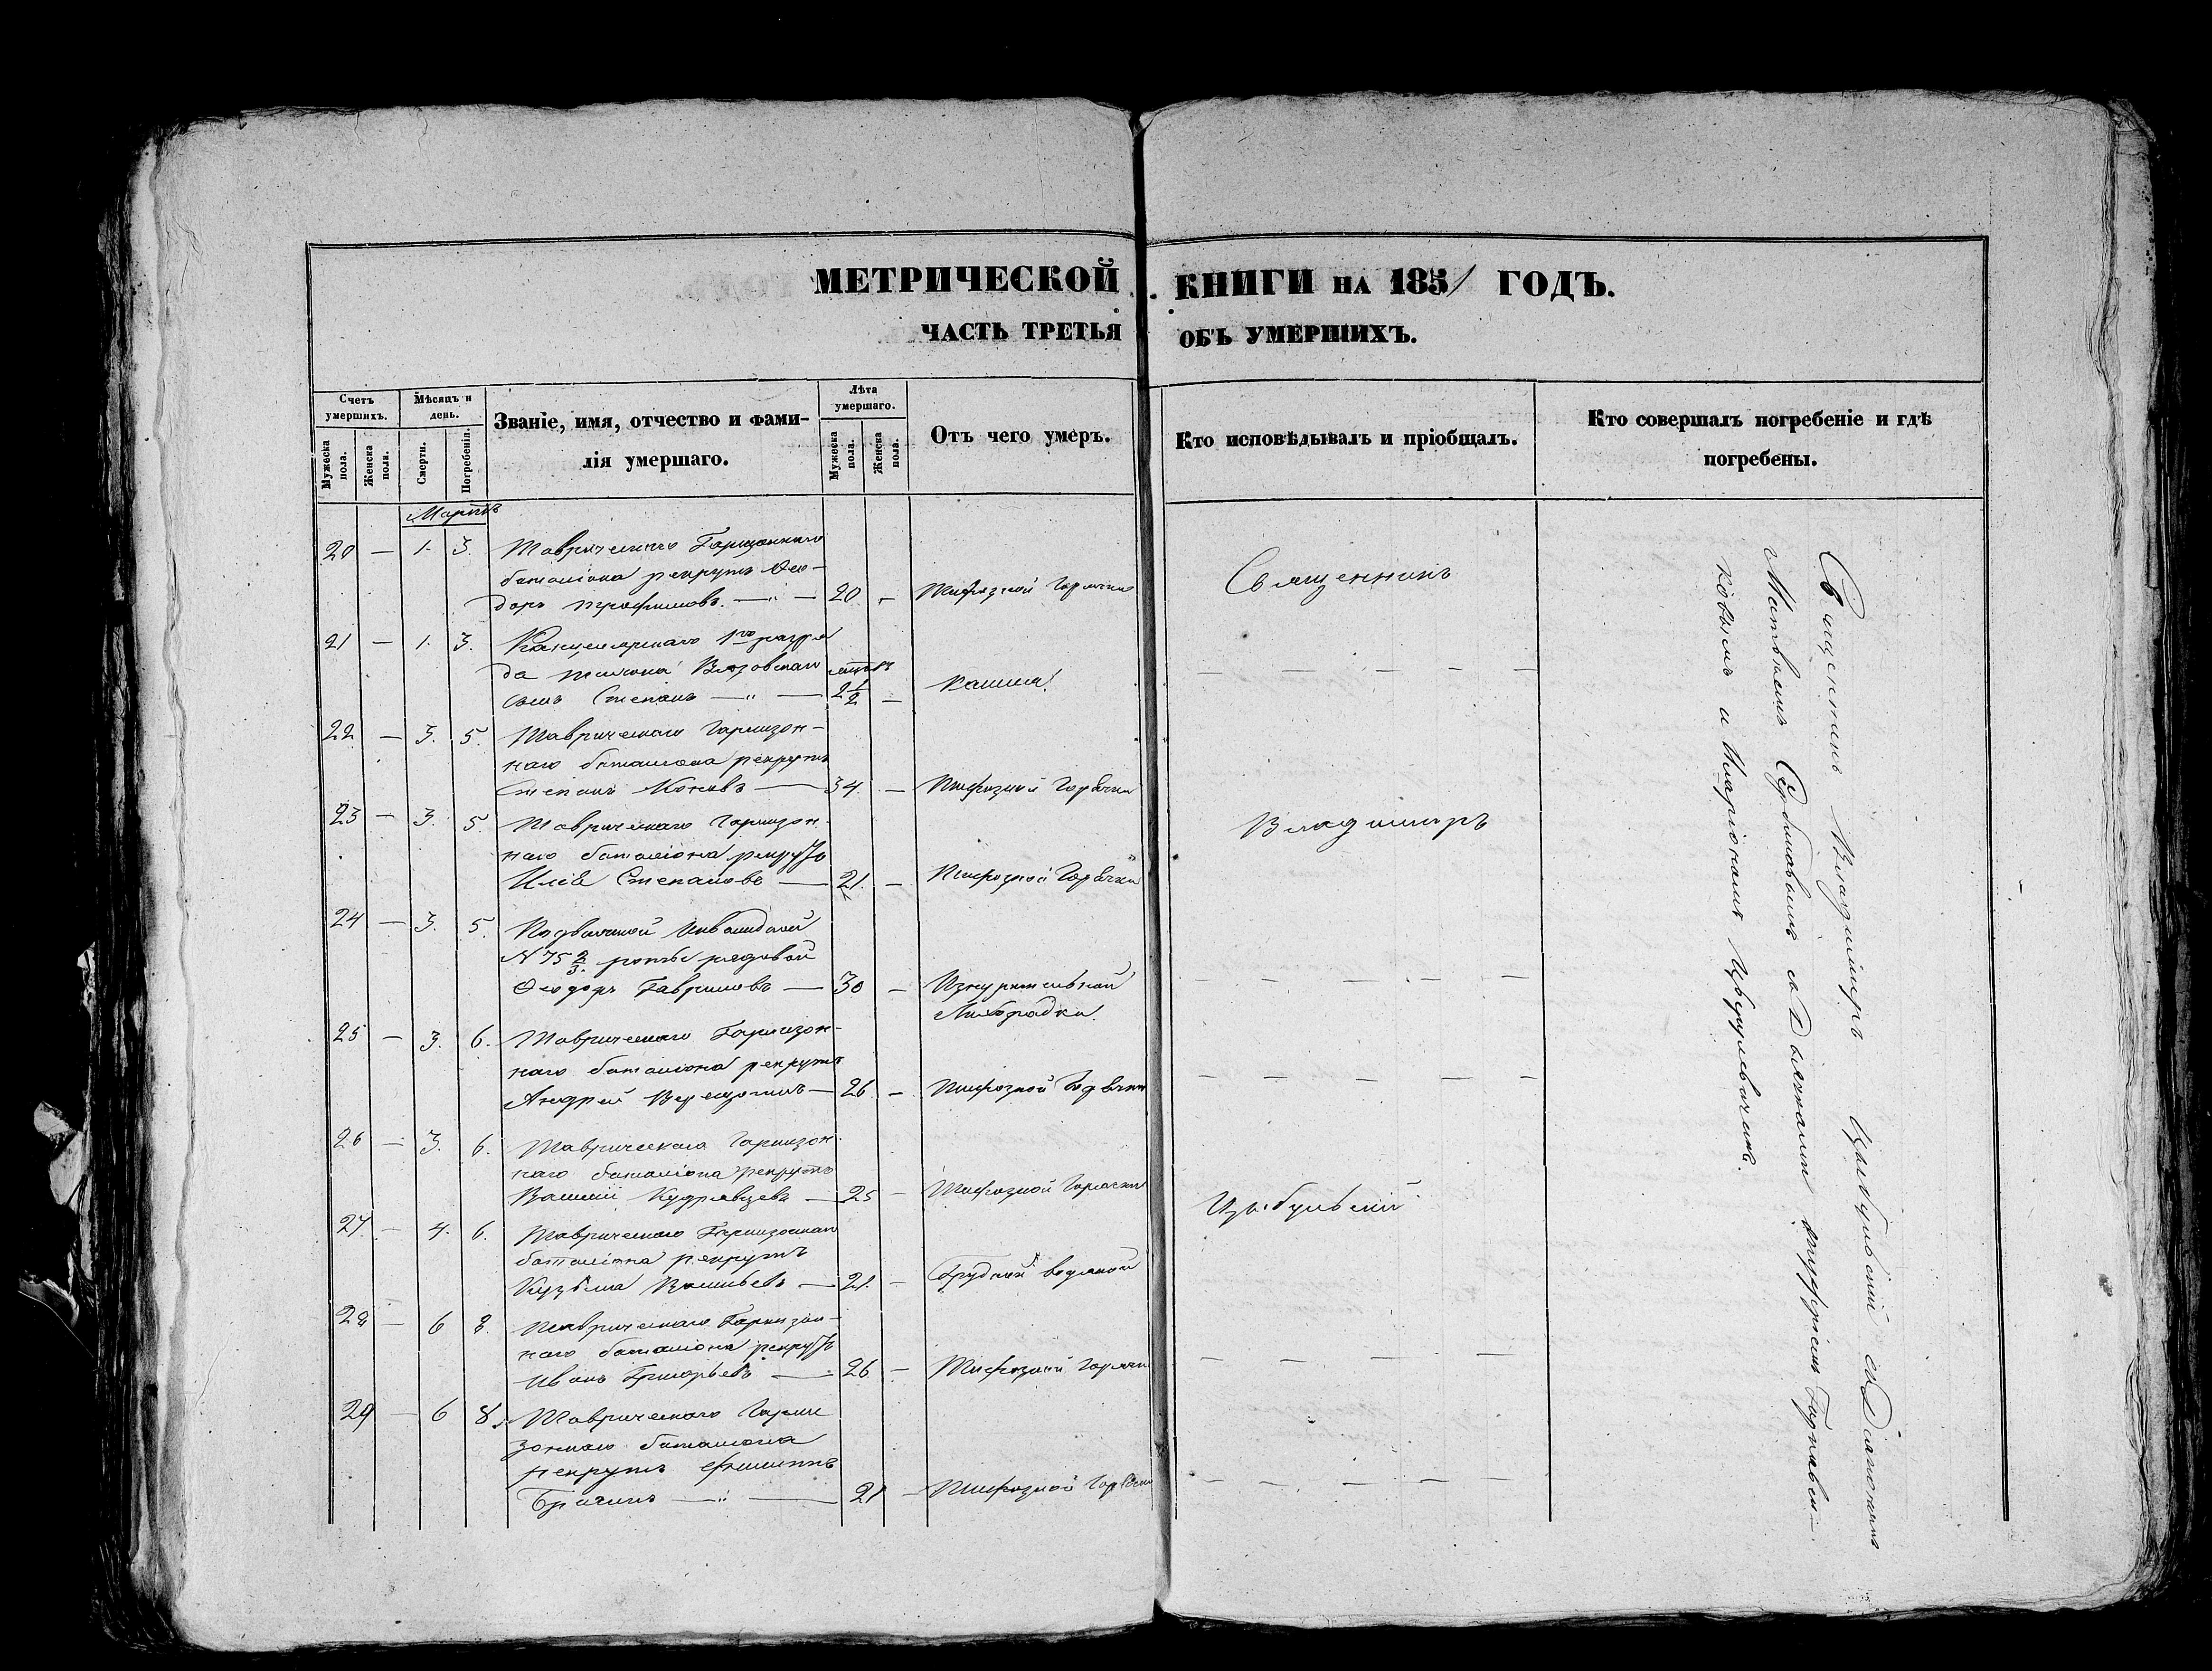 МЕТРИЧЕСКОЙ КНИГИ НА 1851 ГОДЪ.
ЧАСТЬ ТРЕТЬЯ ОБЪ УМЕРШИХЪ.
Счетъ умершихъ.
Мужеска пола.
Женска пола.
Мѣсяцъ и день.
Смерти.
Погребенія.
Званіе, имя, отчество и фами-
лія умершаго.
Лѣта умершаго.
Мужеска пола.
Женска пола.
Отъ чего умеръ.
Кто исповѣдывалъ и пріобщалъ.
Кто совершалъ погребеніе и гдѣ
погребены.
Мартъ
20 — 1. 3. Таврическаго Гарнизоннаго
баталіона рекрутъ Ѳео-
доръ Трофимовъ. — „ — 20 — Тифозной Горячки
21 — 1. 3. Канцелярскаго 1го разря
да Вязовскаго
сынъ Степанъ — „ — 2½ — Кашля
22 — 3. 5. Таврическаго Гарнизон-
наго баталіона рекрутъ
Степанъ — 34. — Тифозной Горячки
23 — 3. 5. Таврическаго Гарнизон-
наго баталіона рекрутъ
Илія Степановъ — 21. — Тифозной Горячки
24 — 3. 5. Подвижной Инвалидной
N 75 2/3. роты рядовой
Ѳеодоръ Гавриловъ — 30 — Изнурительной
Лихорадки.
25 — 3. 6. Таврическаго Гарнизон-
наго баталіона рекрутъ
Андрей — 26. — Тифозной Горячки
26 — 3. 6. Таврическаго Гарнизон-
наго баталіона рекрутъ
Василій Кудрявцевъ — 25 — Тифозной Горячки
27 — 4. 6. Таврическаго Гарнизоннаго
баталіона рекрутъ
Кузьма Васильевъ — 21. — Грудной водяной
28 — 6 8. Таврическаго Гарнизон-
наго баталіона рекрутъ
Иванъ Григорьевъ — 26 — Тифозной Горячки
29 — 6 8. Таврическаго Гарни
зоннаго баталіона
рекрутъ
— „ — 21 — Тифозной Горячки
Священникъ
Владимиръ
Цыбульскій
Священникъ Владиміръ Цымбульскій съ Діакономъ
Матвѣемъ съ Дьячками
ковымъ и Иларіономъ